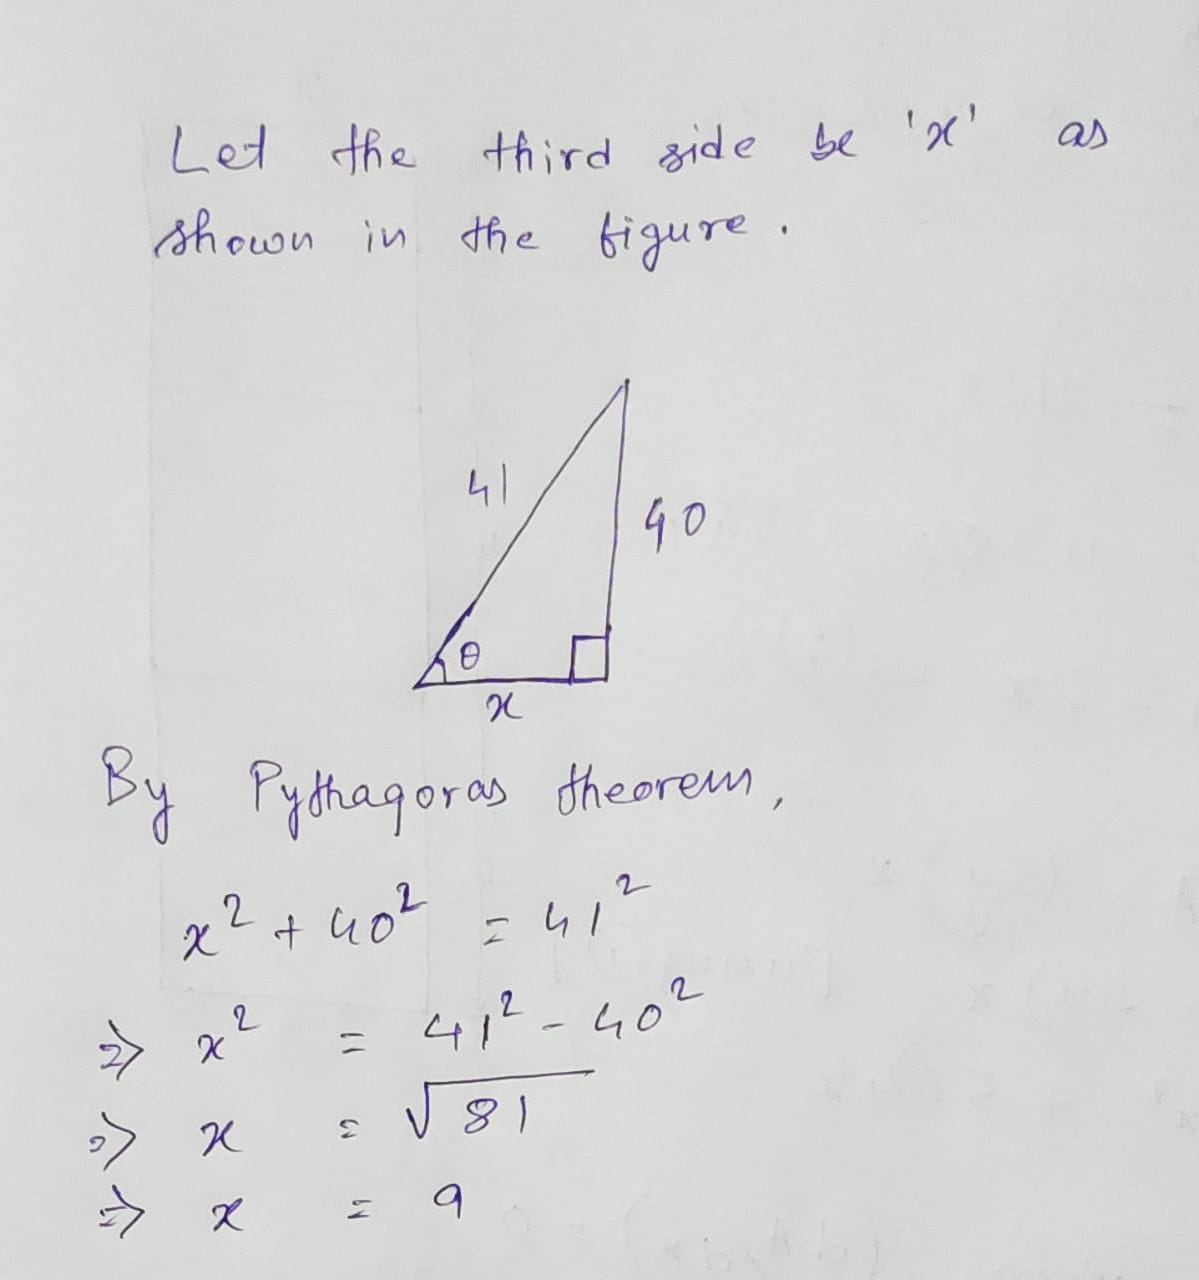 Let the third side be 'x' as
shown in the figure.
41
40
θ
x
By Pythagoras theorem,
x² + 40² = 41²
⇒ x² = 41² - 40²
⇒ x = √81
⇒ x = 9